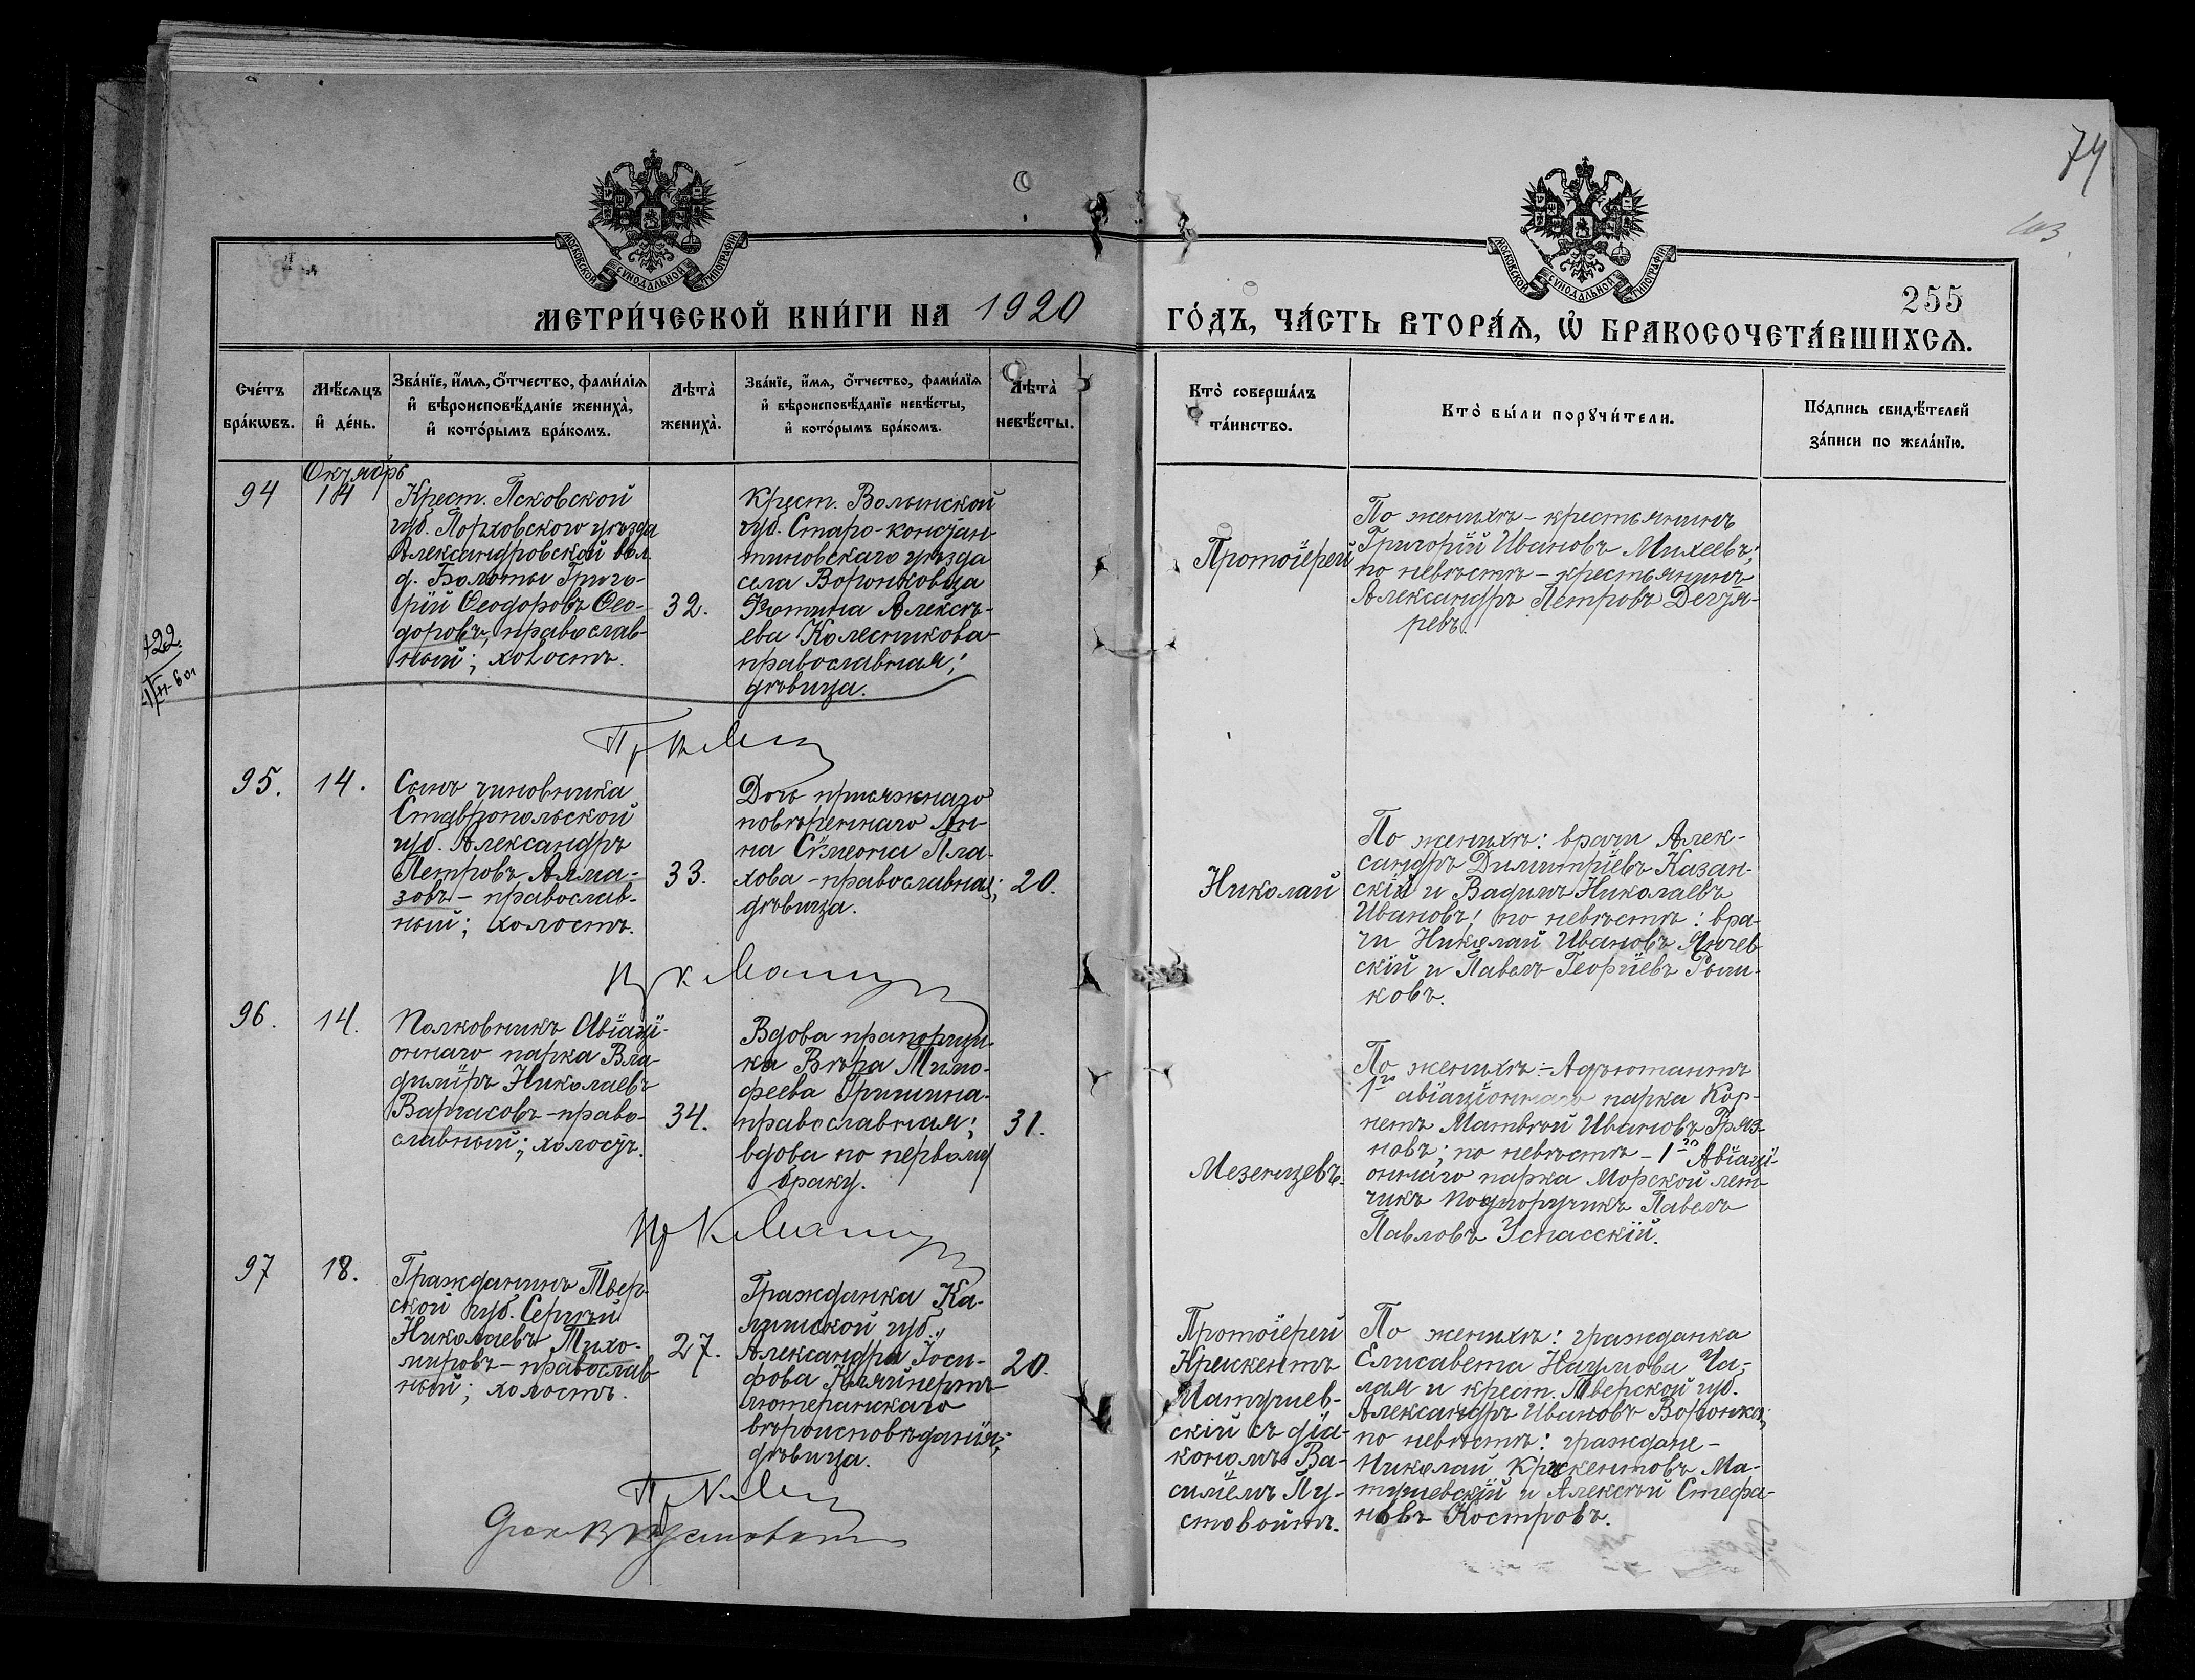 74
103
255
МОСКОВСКОЙ СѴНОДАЛЬНОЙ ТИПОГРАФІИ
МОСКОВСКОЙ СѴНОДАЛЬНОЙ ТИПОГРАФІИ
МЕТРИ́ЧЕСКОЙ КНИ́ГИ НА 1920
ГО́ДЪ, ЧА́СТЬ ВТОРА́Ѧ, Ѡ҆ БРАКОСОЧЕТА́ВШИХСѦ.
Сче́тъ
бра́кѡвъ.
Мѣ́сѧцъ
и҆ де́нь.
Зва́нїе, и҆́мѧ, ѻ҆́тчество, фами́лїѧ
и҆ вѣроисповѣ́данїе жениха̀,
и҆ кото́рымъ бра́комъ.
Лѣта̀
жениха̀.
Зва́нїе, и҆́мѧ, ѻ҆́тчество, фами́лїѧ
и҆ вѣроисповѣ́данїе невѣ́сты,
и҆ кото́рымъ бра́комъ.
Лѣта̀
невѣ́сты.
Кто̀ соверша́лъ
та́инство.
Кто̀ бы́ли порꙋчи́тели.
По́дпись свидѣ́телей
за́писи по жела́нїю.
94
Октябрь
14
Крест. Псковской
губ. Порховскаго уѣзда
Александровской вол.
д. Болоты Григо-
рій Ѳеодоровъ Ѳео-
доровъ, православ-
ный; холостъ.
32.
Крест. Волынской
губ. Старо-констан-
тиновскаго уѣзда
села Воронковца
Фотина Алексѣ-
ева Колесникова
православная;
дѣвица.
Протоіерей
По женихѣ – крестьянинъ
Григорій Ивановъ Михеевъ;
по невѣстѣ – крестьянинъ
Александръ Петровъ Дегтя-
ревъ.
95.
14.
Сынъ чиновника
Ставропольской
губ. Александръ
Петровъ Алма-
зовъ – православ-
ный; холостъ.
33.
Дочь присяжнаго
повѣреннаго Ан-
на Сѵмеона Пла-
хова – православная;
дѣвица.
20.
Николай
По женихѣ: врачи Алек-
сандръ Димитріевъ Казан-
скій и Вадимъ Николаевъ
Ивановъ; по невѣстѣ: вра-
чи Николай Ивановъ Янчев-
скій и Павелъ Георгіевъ
ковъ.
96.
14.
Полковникъ Авіаці-
оннаго парка Вла-
диміръ Николаевъ
Варгасовъ – право-
славный; холостъ.
34.
Вдова прапорщи-
ка Вѣра Тимо-
феева Гришина
православная;
вдова по первому
браку.
31.
Мезенцевъ.
По женихѣ: – Адъютантъ
1го авіаціоннаго парка Кор-
нетъ Матвѣй Ивановъ Гряз-
новъ; по невѣстѣ – 1го Авіаці-
оннаго парка Морской лет-
чикъ подпоручикъ Павелъ
Павловъ Успасскій.
97
18.
Гражданинъ Твер-
ской губ. Сергѣй
Николаевъ Тихо-
мировъ – православ-
ный; холостъ.
27.
Гражданка Ка-
лишской губ.,
Александра Іоси-
фова Кляйнертъ
лютеранскаго
вѣроисповѣданія;
дѣвица.
20.
Протоіерей
Крискентъ
Матушев-
скій съ діа-
кономъ Ва-
силіемъ Пу-
стовойтъ.
По женихѣ: гражданка
Елисавета Наумова Ча-
лая и крест. Тверской губ.
Александръ Ивановъ Воронко;
по невѣстѣ: граждане –
Николай Крискентовъ Ма-
тушевскій и Алексѣй Стефа-
новъ Костровъ.